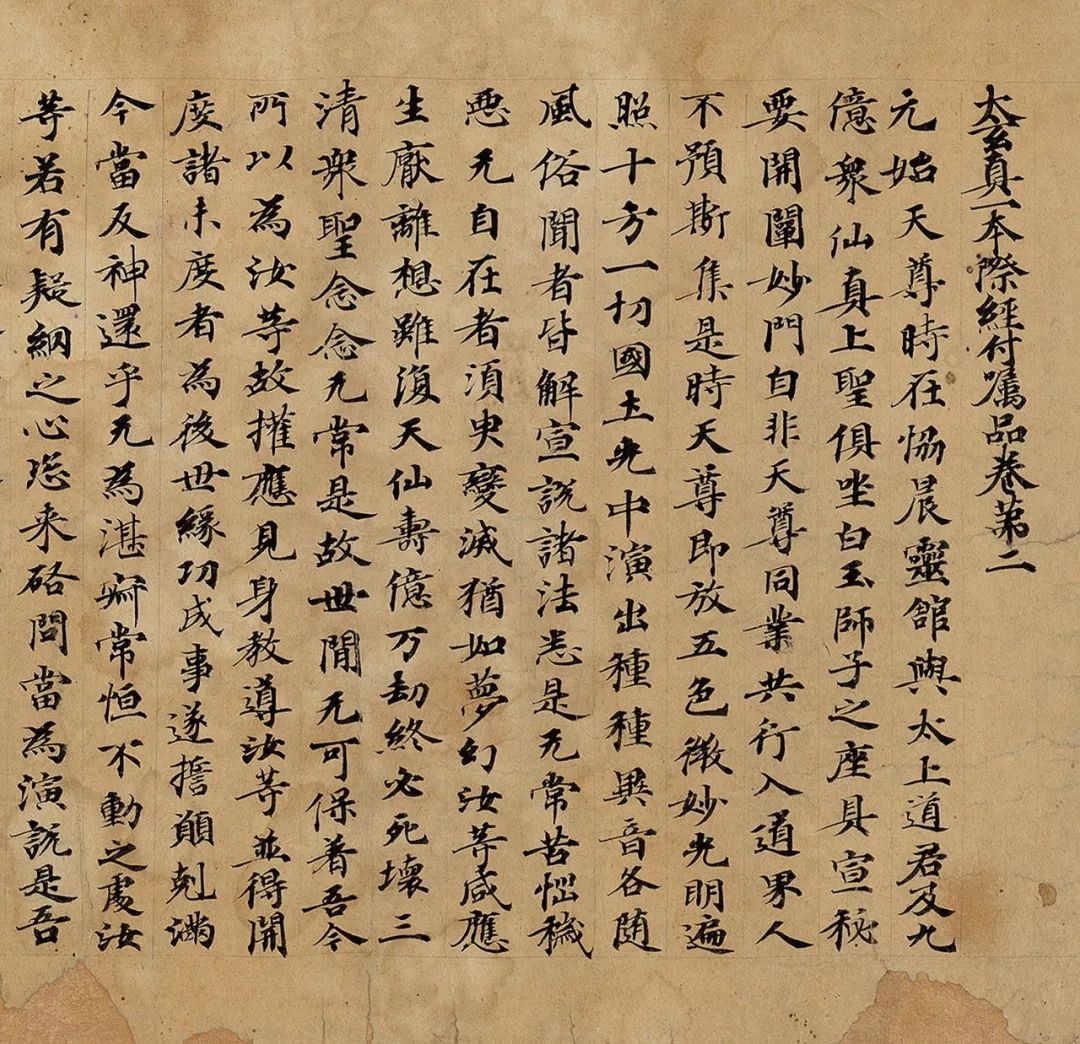 太玄真一本際經付囑品卷第二
元始天尊時在協晨靈館與太上道君及九
億衆仙真上聖俱坐白玉師子之座具宣秘
要開闡妙門自非天尊同業共行入道界人
不預斯集是時天尊即放五色徵妙光明遍
照十方一切國土光中演出種種異音各随
風俗聞者皆解宣説諸法悉是无常苦惱穢
惡无自在者湏臾變滅猶如夢幻汝等咸應
生厭離想雖復天仙壽億万劫終必死壞三
清衆聖念念无常是故世間无可保著吾今
所以為汝等故權應見身教導汝等並得開
度諸未度者為後世緣功成事遂擔願剋滿
今當反神還乎无為湛寂常恒不動之處汝
等若有疑網之心恣来啓問當為演説是吾